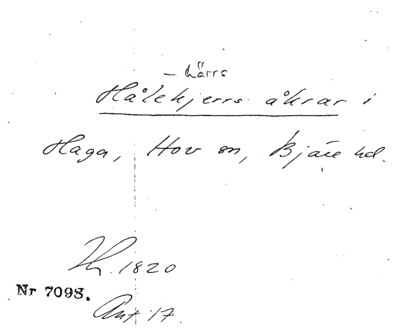 - kärrs
Hålekjerrs åkrar i
Haga, Hov sn, Bjäre hd.
Th. 1820
Nr 7098.
Ant. 17.